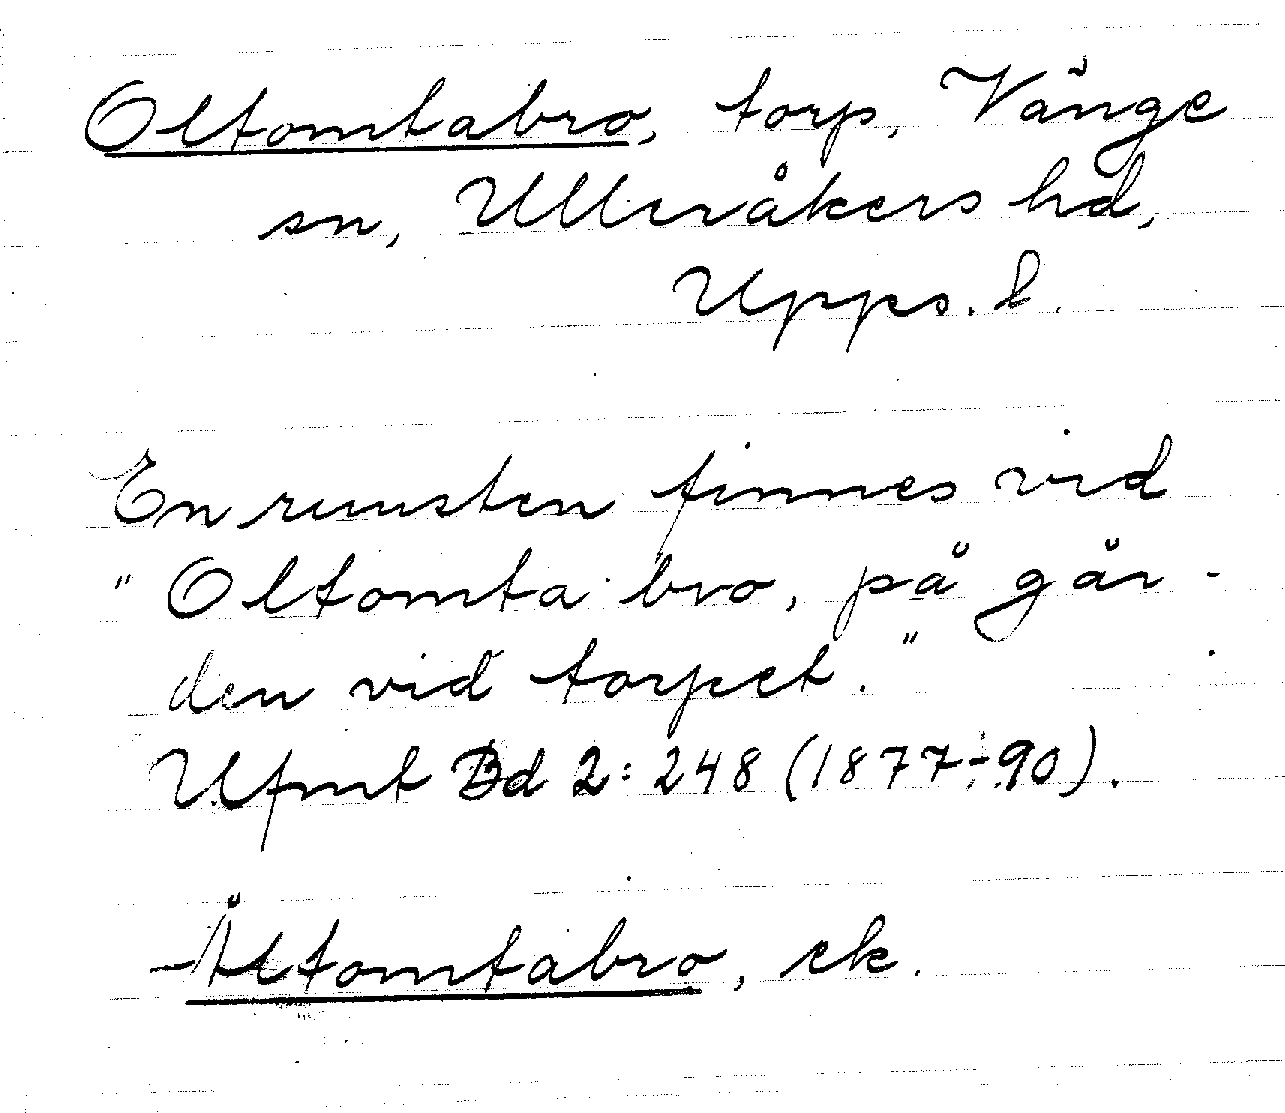 Oltomtabro, torp, Vänge
sn, Ulleråkers hd,
Upps. l.
En runsten finnes vid
"Oltomta bro, på går-
den vid torpet."
Ufmt Bd 2: 248 (1877-90).
Åltomtabro, ek.